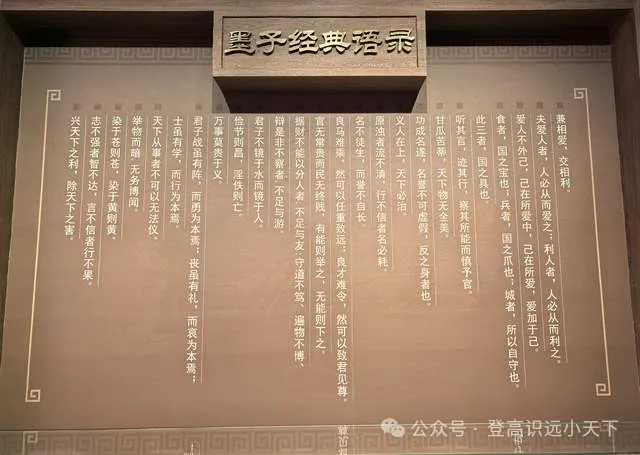 墨子经典语录
兼相爱，交相利。
夫爱人者，人必从而爱之；利人者，人必从而利之。
爱人不外己，己在所爱中，己在所爱，爱加于己。
食者，国之宝也；兵者，国之爪也；城者，所以自守也。
此三者，国之具也。
听其言，迹其行，察其所能而慎予官。
甘瓜苦蒂，天下物无全美。
功成名遂，名誉不可虚假，反之身者也。
义人在上，天下必治。
原浊者流不清，行不信者名必耗。
名不徒生，而誉不自长。
良马难乘，然可以任重致远；良才难令，然可以致君见尊。
官无常贵而民无终贱，有能则举之，无能则下之。
据财不能以分人者，不足与友；守道不笃、遍物不博、
辩是非不察者，不足与游。
君子不镜于水而镜于人。
俭节则昌，淫佚则亡。
万事莫贵于义。
君子战虽有阵，而勇为本焉；丧虽有礼，而哀为本焉；
士虽有学，而行为本焉。
天下从事者不可以无法仪。
举物而暗，无务博闻。
染于苍则苍，染于黄则黄。
志不强者智不达，言不信者行不果。
兴天下之利，除天下之害。
公众号·登高识远小天下